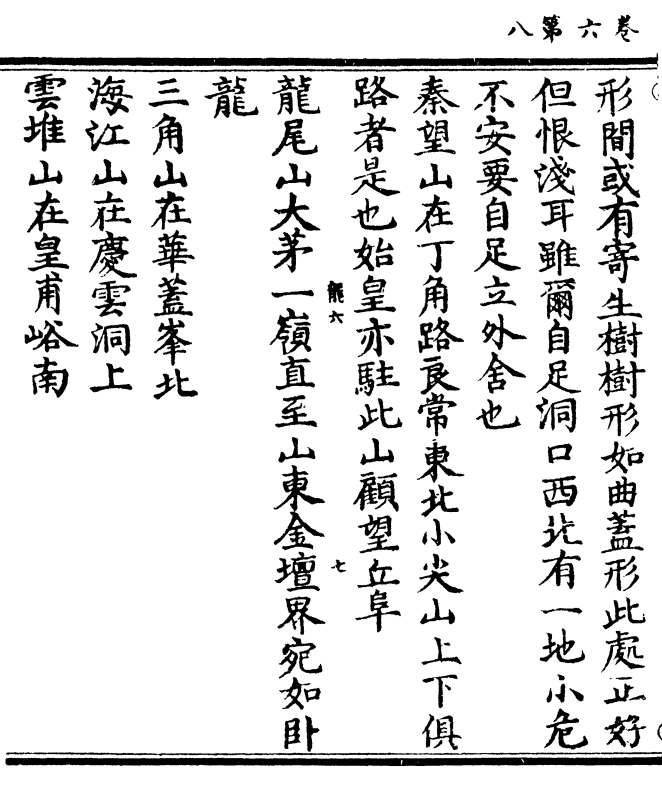 卷六第八
形間或有寄生樹樹形如曲蓋形此處正好
但恨淺耳雖爾自足洞口西北有一地小危
不安要自足立外舍也
秦望山在丁角路良常東北小尖山上下俱
路者是也始皇亦駐此山顧望丘阜
龍六
七
龍尾山大茅一嶺直至山東金壇界宛如卧
龍
三角山在華蓋峯北
海江山在慶雲洞上
雲堆山在皇甫峪南